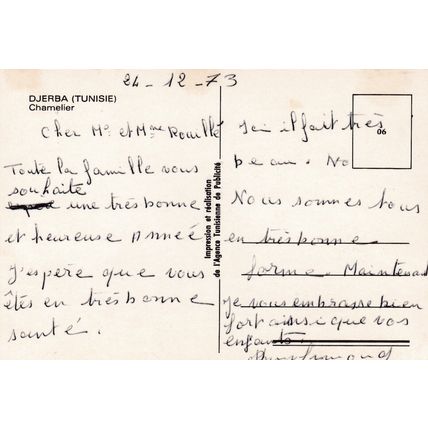 24-12-73
DJERBA (TUNISIE)
Chamelier
Cher Mr et Mme Rouillé
Toute la famille vous
souhaite
une très bonne
et heureuse Année
J'espère que vous
êtes en très bonne
santé.
Impression et réalisation
de l'Agence Tunisienne de Publicité
06
ici il fait très
beau. No
Nous sommes tous
en très bonne
forme. Maintenant
Je vous embrasse bien
fort ainsi que vos
enfants